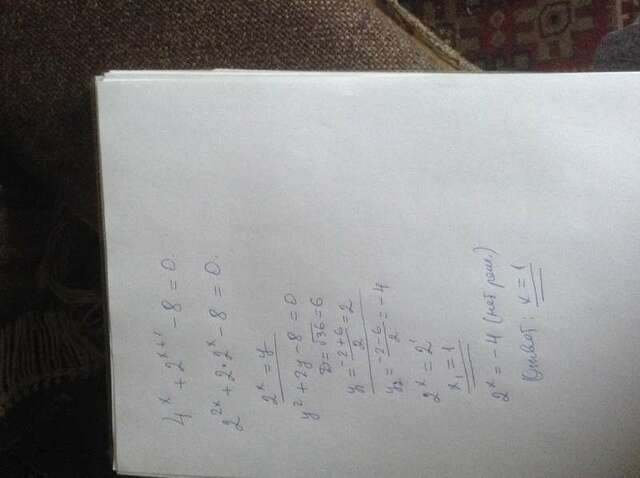 4^x + 2^{x+1} - 8 = 0.
2^{2x} + 2·2^x - 8 = 0.
2^x = y
y² + 2y - 8 = 0
D = √36 = 6
y₁ = \frac{-2+6}{2} = 2
y₂ = \frac{-2-6}{2} = -4
2^x = 2^1
x₁ = 1
2^x = -4 (нет реш.)
Ответ: x = 1